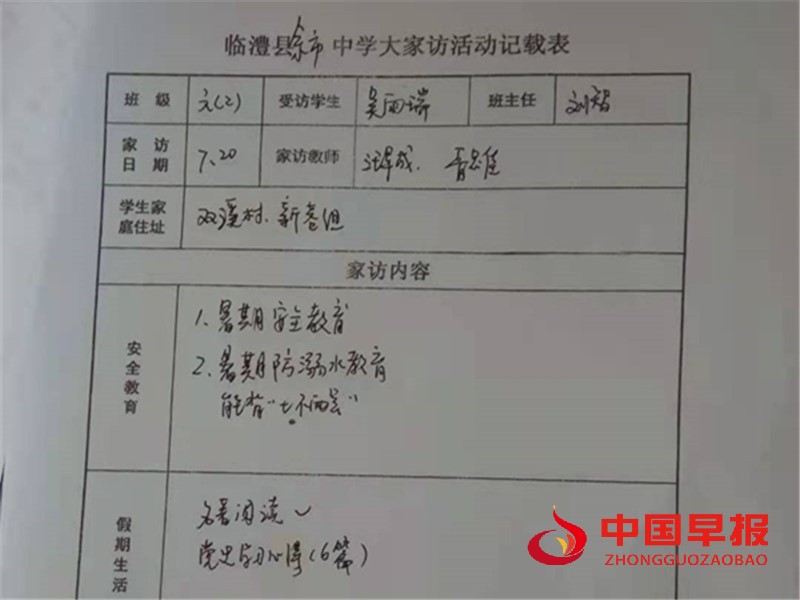 临澧县余市中学大家访活动记载表
班 级 六(2) 受访学生 吴雨瑞 班主任 刘智
家访日期 7.20 家访教师
学生家庭住址 双溪村、新 组
家访内容
安全教育
1、暑期安全教育
2、暑期防溺水教育
能背“七不两会”
假期生活
名著阅读 ✓
党史学习心得(6篇)
中国早报
ZHONGGUOZAOBAO